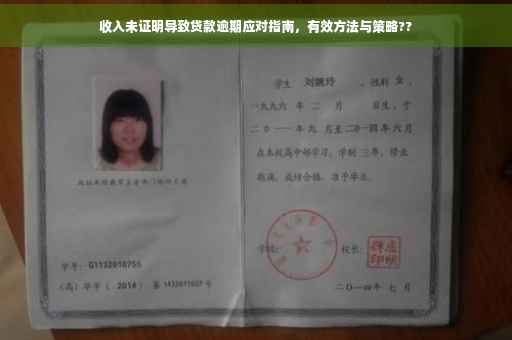 收入未证明导致贷款逾期应对指南，有效方法与策略??
学生 刘婉玲 ，性别 女 ，
一九九六 年 二 月 日生，于
二〇一一年 九 月至二〇一四年 六 月
在本校高中部学习，学制 三年，修业
期满，成绩合格，准予毕业。
学校： 校长：
二〇一四年 七 月
学号： G1132010755
（高）毕字（ 2014 ）第 1432011027 号